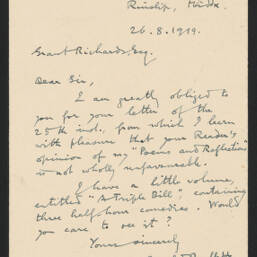 Ruislip, Middx.
26.8.1919.
Grant Richards, Esq.
Dear Sir,
I am greatly obliged to
you for your letter of the
25th inst., from which I learn
with pleasure that your Reader's
opinion of my "Poems and Reflection"
is not wholly unfavourable.
I have a little volume,
entitled "A Triple Bill", containing
three half hour comedies. Would
you care to see it?
Yours sincerely